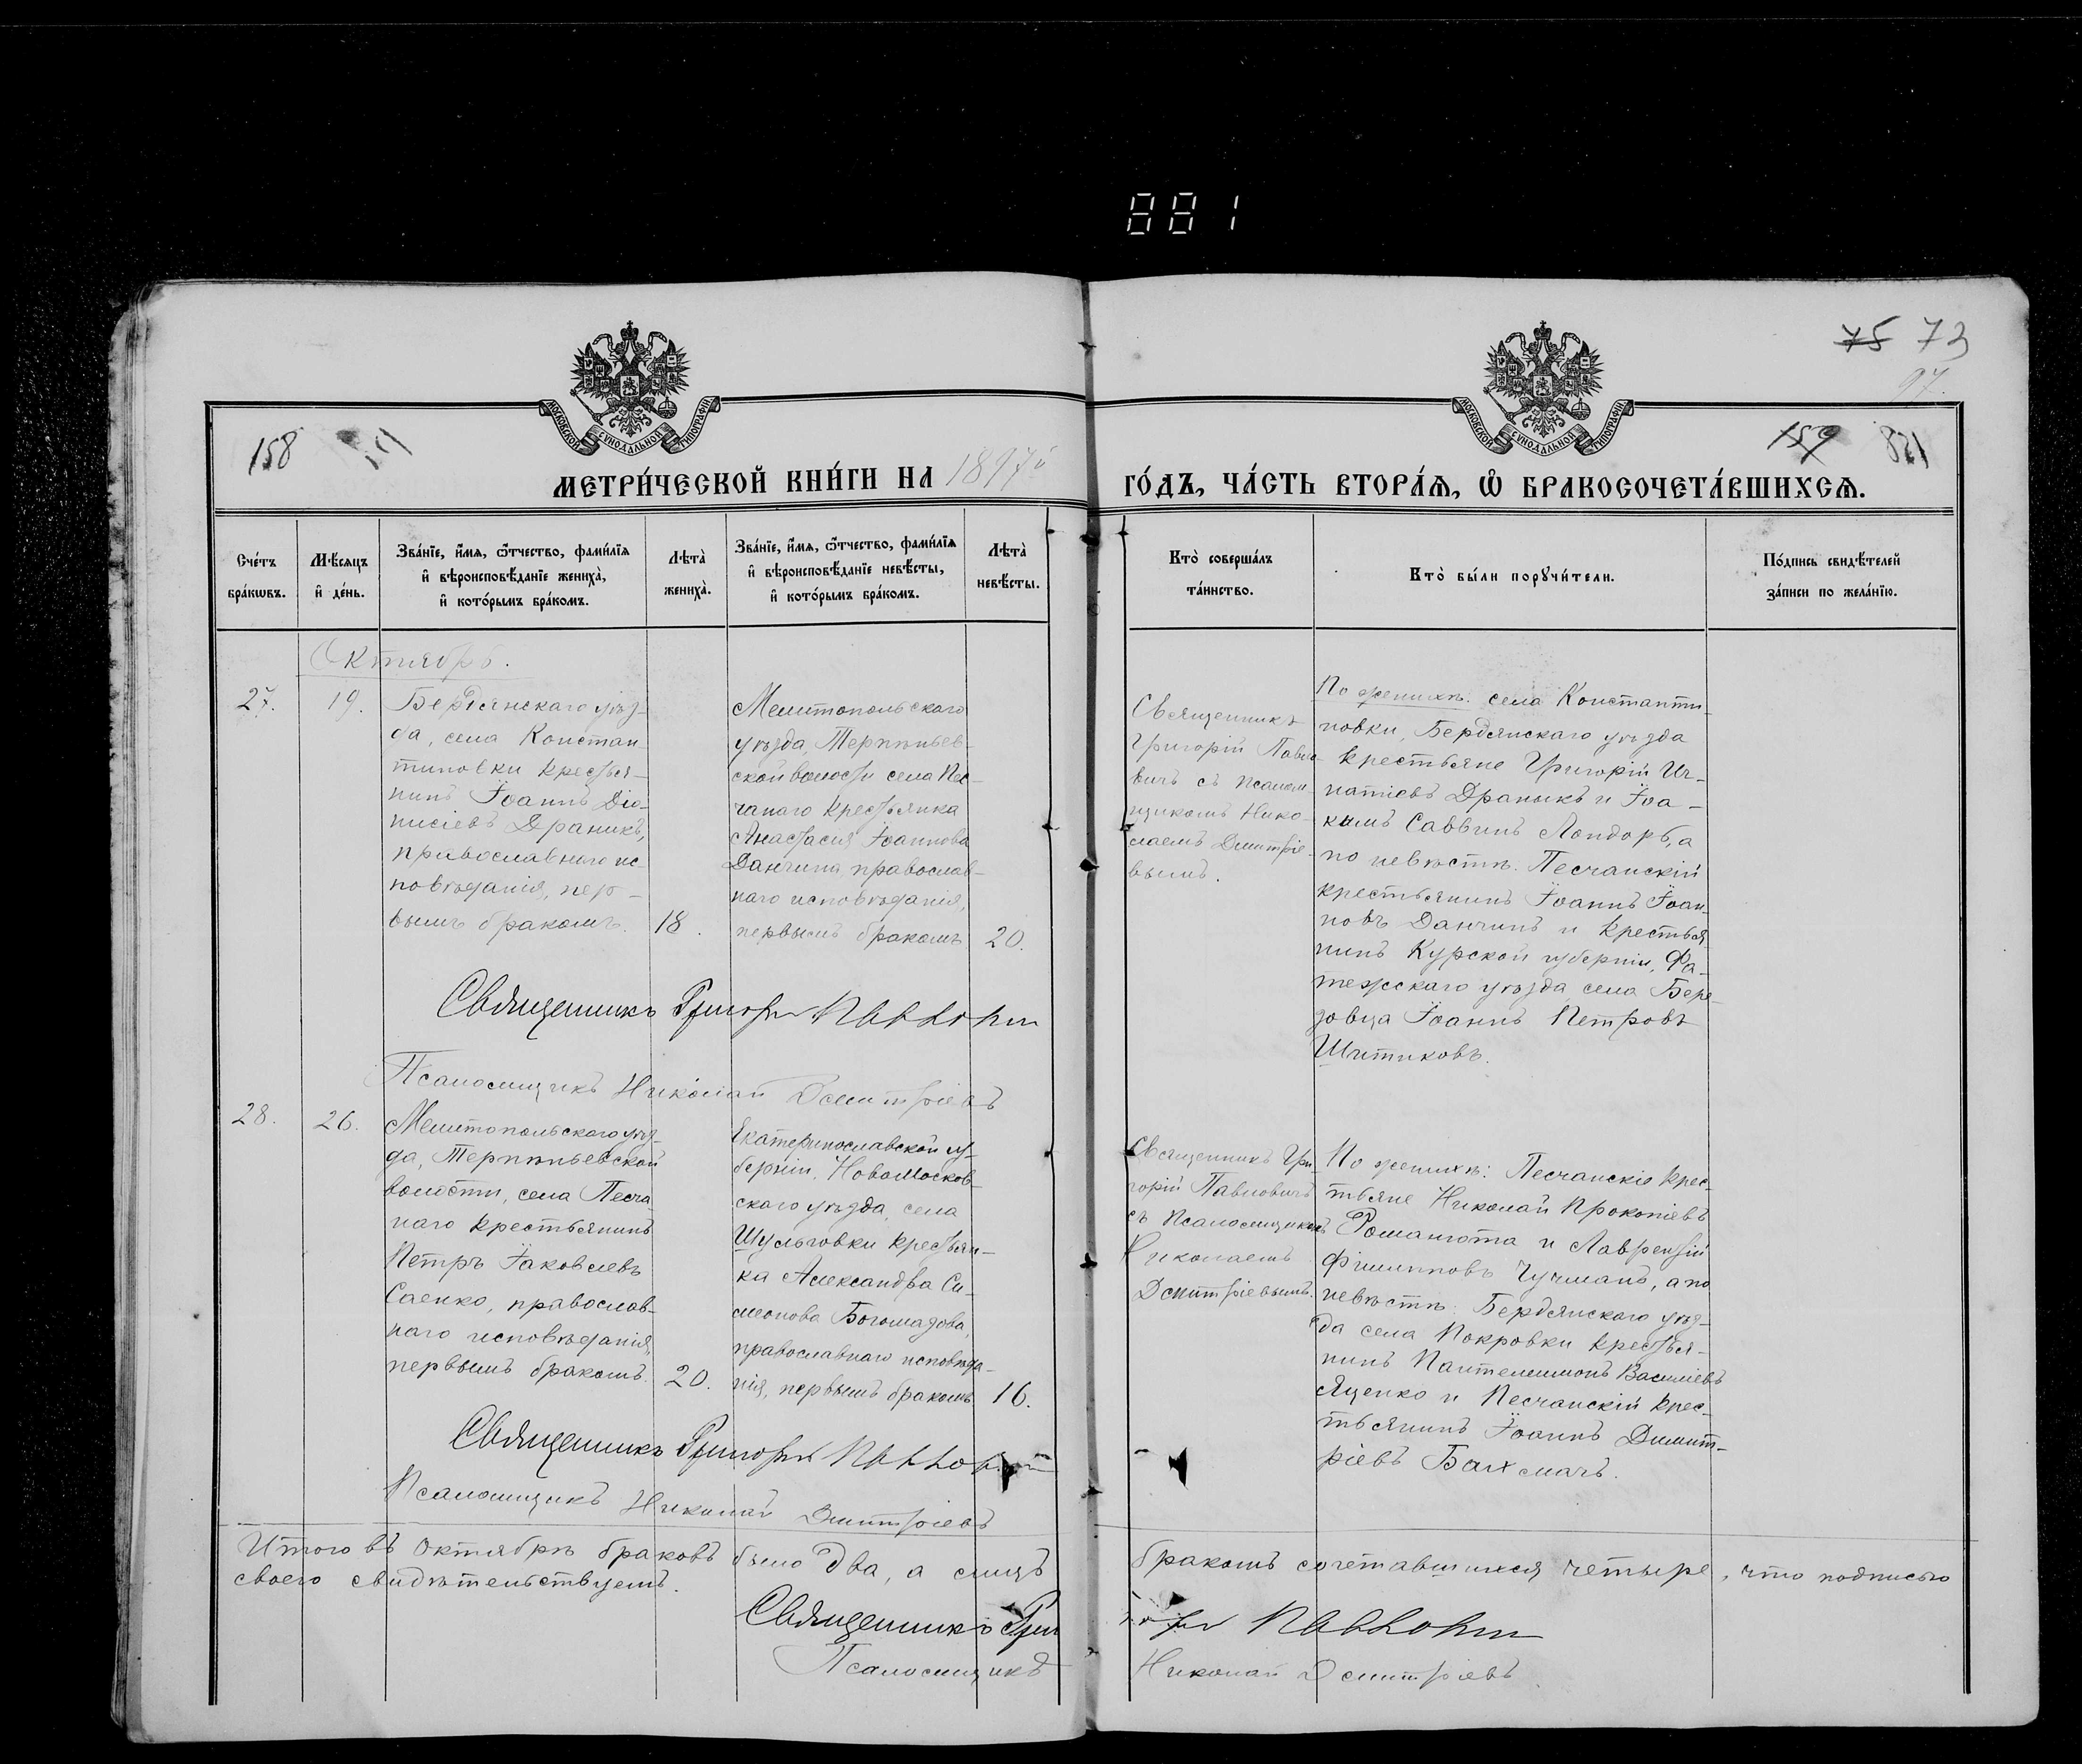 881
75 73
97.
158
159 821
МОСКОВСКОЙ СѴНОДАЛЬНОЙ ТИПОГРАФІИ
МОСКОВСКОЙ СѴНОДАЛЬНОЙ ТИПОГРАФІИ
МЕТРИ́ЧЕСКОЙ КНИ́ГИ НА 1897й
ГО́ДЪ, ЧА́СТЬ ВТОРА́Ѧ, Ѽ БРАКОСОЧЕТА́ВШИХСѦ.
Сче́тъ
бра́кѡвъ.
Мѣ́сяцъ
и҆ де́нь.
Зва́нїе, и҆́мѧ, ѻ҆́тчество, фами́лїѧ
и҆ вѣроисповѣ́данїе жениха̀,
и҆ кото́рымъ бра́комъ.
Лѣта̀
жениха̀.
Зва́нїе, и҆́мѧ, ѻ҆́тчество, фами́лїѧ
и҆ вѣроисповѣ́данїе невѣ́сты,
и҆ кото́рымъ бра́комъ.
Лѣта̀
невѣ́сты.
Кто̀ соверша́лъ
та́инство.
Кто̀ бы́ли порꙋчи́тели.
По́дпись свидѣ́телей
за́писи по жела́нїю.
Октябрь.
27.
19.
Бердянскаго уѣз-
да, села Констан-
тиновки крестья-
нинъ Іоаннъ Діо-
нисіевъ Драникъ,
православнаго ис-
повѣданія, пер-
вымъ бракомъ.
18.
Мелитопольскаго
уѣзда, Терпѣньев-
ской волости села Пес-
чанаго крестьянка
Анастасія Іоаннова
Данчина, православ-
наго исповѣданія,
первымъ бракомъ
20.
Священникъ
Григорій Павло-
вичъ съ псалом-
щикомъ Нико-
лаемъ Дмитріе-
вымъ.
По женихѣ: села Константи-
новки, Бердянскаго уѣзда
крестьяне Григорій Иг-
натіевъ Драныкъ и Іоа-
кимъ Саввинъ Лондарь, а
по невѣстѣ: Песчанскій
крестьянинъ Іоаннъ Іоан-
новъ Данчинъ и крестья-
нинъ Курской губерніи, Фа-
тежскаго уѣзда села Бере-
зовца Іоаннъ Петровъ
Шитиковъ.
Священникъ Григорій Павловичъ
Псаломщикъ Николай Дмитріевъ
28.
26.
Мелитопольскаго уѣз-
да, Терпѣньевской
волости, села Песча-
наго крестьянинъ
Петръ Іаковлевъ
Саенко, православ-
наго исповѣданія,
первымъ бракомъ.
20.
Екатеринославской гу-
берніи, Новомосков-
скаго уѣзда, села
Шульговки крестьян-
ка Александра Си-
меонова Богомазова,
православнаго исповѣда-
нія, первымъ бракомъ
16.
Священникъ Гри-
горій Павловичъ
съ псаломщикомъ
Николаемъ
Дмитріевымъ.
По женихѣ: Песчанскіе крес-
тьяне Николай Прокопіевъ
Романюта и Лаврентій
Филипповъ Чучманъ, а по
невѣстѣ: Бердянскаго уѣз-
да села Покровки крестья-
нинъ Пантелеимонъ Василіевъ
Яценко и Песчанскій крес-
тьянинъ Іоаннъ Димит-
ріевъ Бахмачъ.
Священникъ Григорій Павловичъ
Псаломщикъ Николай Дмитріевъ
Итого въ октябрѣ браковъ было два, а лицъ бракомъ сочетавшихся четыре, что подписью
своею свидѣтельствуемъ.
Священникъ Григорій Павловичъ
Псаломщикъ Николай Дмитріевъ